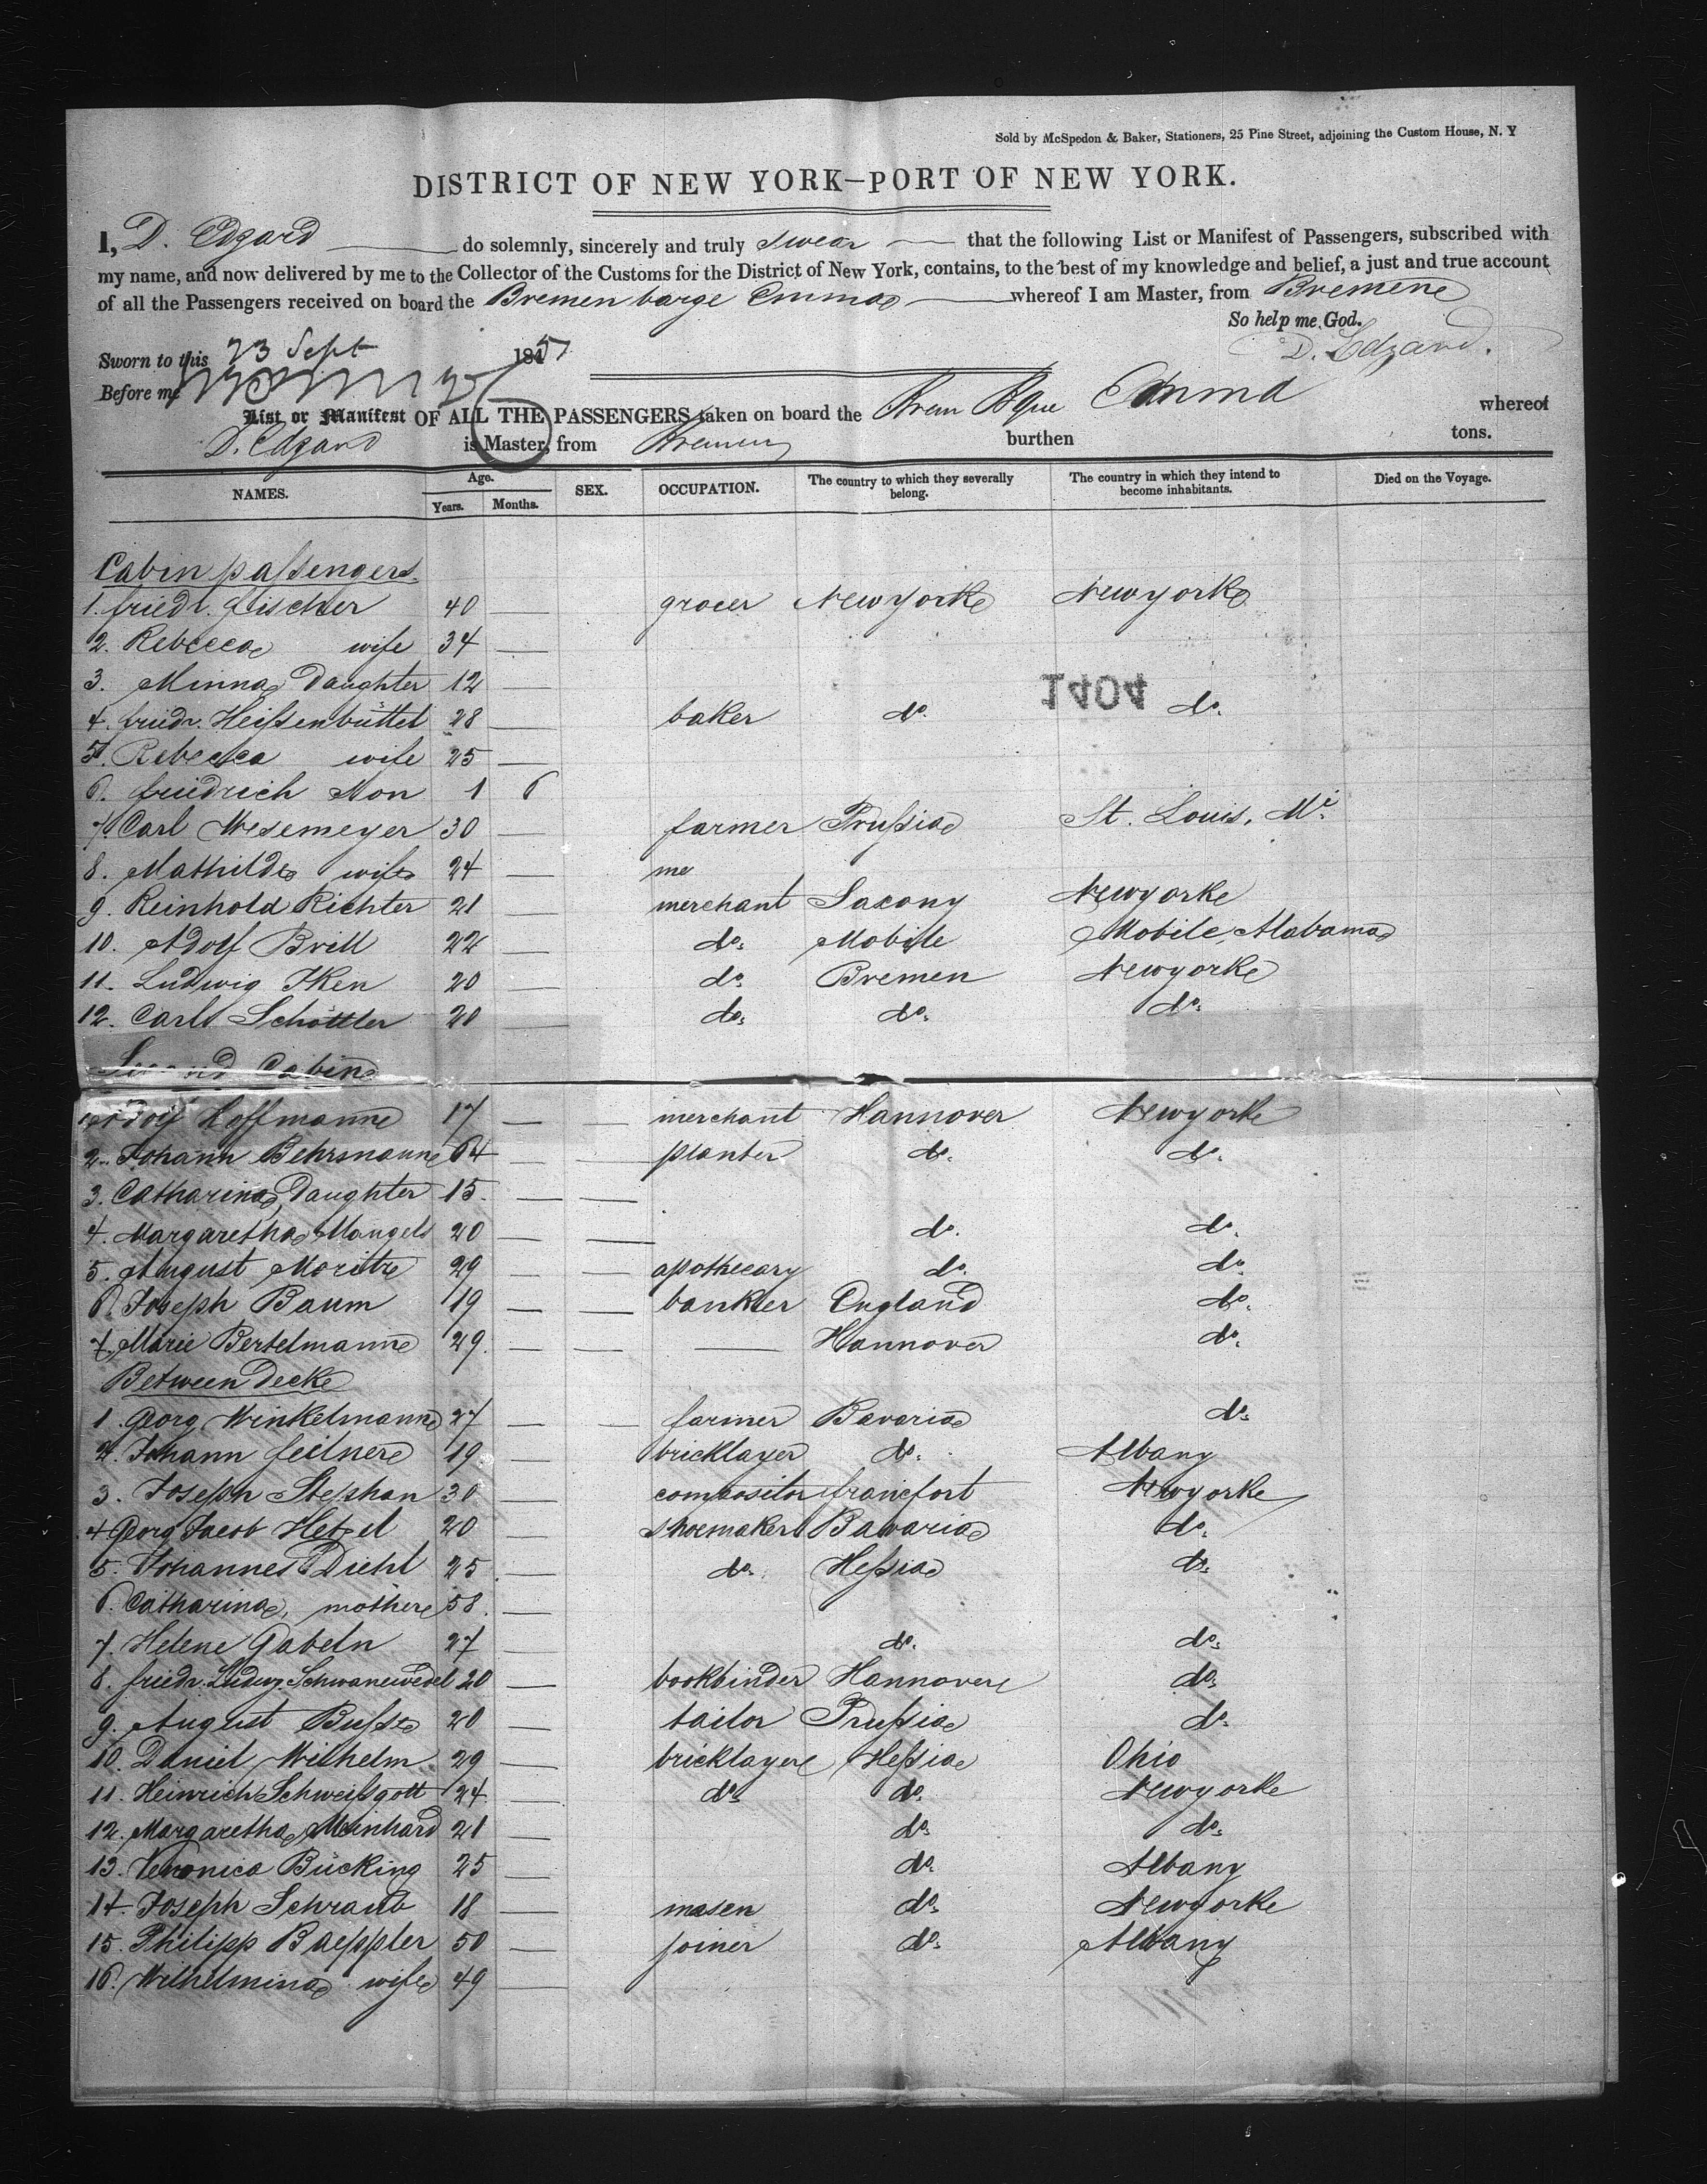 Sold by McSpedon & Baker, Stationers, 25 Pine Street, adjoining the Custom House, N. Y
DISTRICT OF NEW YORK—PORT OF NEW YORK.
I, D. Edzard do solemnly, sincerely and truly swear that the following List or Manifest of Passengers, subscribed with
my name, and now delivered by me to the Collector of the Customs for the District of New York, contains, to the best of my knowledge and belief, a just and true account
of all the Passengers received on board the Bremen barge Emma whereof I am Master, from Bremen
So help me God.
Sworn to this 23 Sept 1851 D. Edzard.
Before me
List or Manifest OF ALL THE PASSENGERS taken on board the Brem Bque Emma whereof
D. Edzard is Master, from Bremen burthen tons.
NAMES. Age. Years. Months. SEX. OCCUPATION. The country to which they severally belong. The country in which they intend to become inhabitants. Died on the Voyage.
Cabin passengers.
1. friedr. fischer 40 — grocer Newyork Newyork
2. Rebecca wife 34 —
3. Minna Daughter 12 —
1404
4. friedr. Heissenbüttel 28 — baker do. do.
5. Rebecca wife 25 —
6. friedrich Son 1 6
7. Carl Wesemeyer 30 — farmer Prussia St. Louis, Mi.
8. Mathilde wife 24 — me
9. Reinhold Richter 21 — merchant Saxony Newyork
10. Adolf Brill 22 — do. Mobile Mobile, Alabama
11. Ludwig Iken 20 — do. Bremen Newyork
12. Carl Schöttler 20 — do. do. do.
Second Cabin
1. Adolf Hoffmann 17 — — merchant Hannover Newyork
2. Johann Behrsmann 64 — — planter do. do.
3. Catharina, Daughter 15. — —
4. Margaretha Mangels 20 — — do. do.
5. August Moritz 29 — — apothecary do. do.
6. Joseph Baum 19 — — bankier England do.
7. Marie Bertelmann 29. — — — Hannover do.
Between Deck
1. Georg Winkelmann 27 — — farmer Bavaria do.
2. Johann feilner 19. bricklayer do. Albany
3. Joseph Stephan 30 — compositor francfort Newyork
4 Georg Jacob Hetzel 20 — shoemaker Bavaria do.
5. Johannes Diehl 25. — do. Hessia do.
6. Catharina, mother 58. —
7. Helene Gabeln 27 — do. do.
8. friedr. Ludwg Schwanewedel 20 — bookbinder Hannover do.
9. August Busse 20 — tailor Prussia do.
10. Daniel Wilhelm 29 — bricklayer Hessia Ohio
11. Heinrich Schweissgott 24 — do. do. Newyork
12. Margaretha Meinhard 21 — do. do.
13. Veronica Bücking 25 — do. Albany
14. Joseph Schraub 18 — masen do. Newyork
15. Philipp Baeppler 50 — joiner do. Albany
16. Wilhelmina wife 49 —